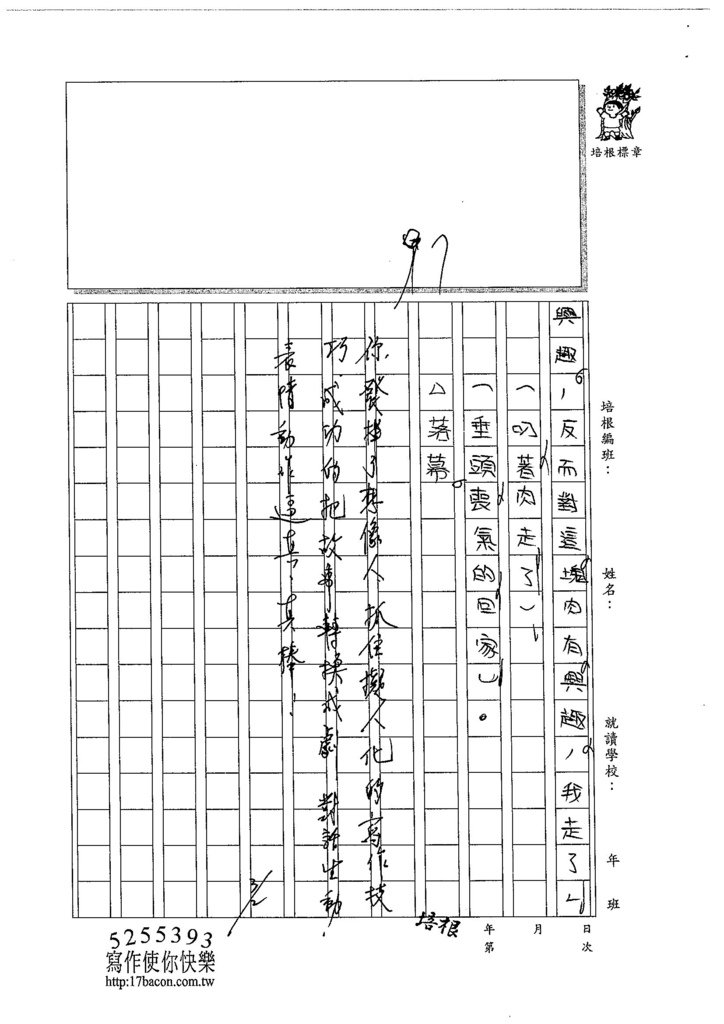 培根標章
97
培根編班：
姓名：
就讀學校：
年 班
興趣，反而對這塊肉有興趣，我走了」
（叼著肉走了）
（垂頭喪氣的回家）。
△落幕
你發揮了想像人抓住擬人化的寫作技
巧.成功的把故事轉換成劇 對話生動!
表情動作逼真、真棒!
3/2
培根
年 月 日
第 次
5255393
寫作使你快樂
http:17bacon.com.tw